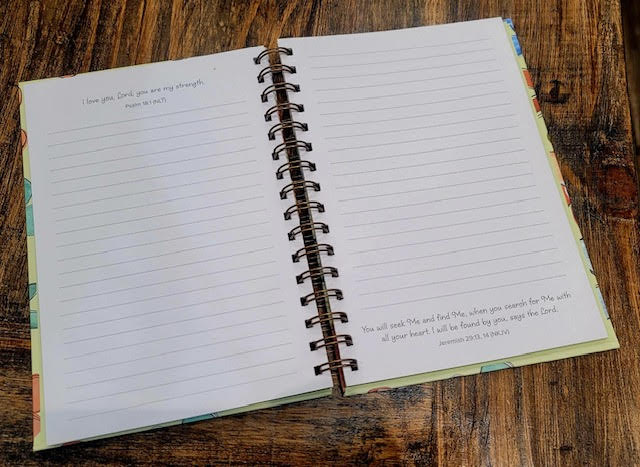 I love you, Lord; you are my strength.
Psalm 18:1 (NLT)
You will seek Me and find Me, when you search for Me with
all your heart. I will be found by you, says the Lord.
Jeremiah 29:13, 14 (NKJV)